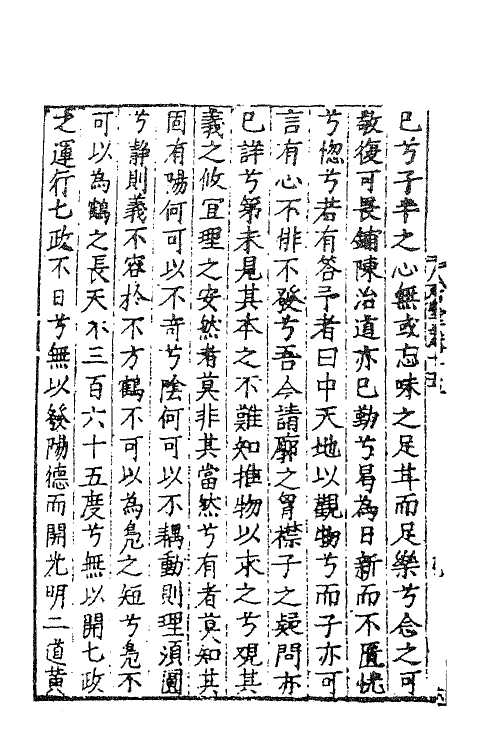 已兮子半之心無或忘味之足其而足樂兮念之可
敬復可畏鋪陳治道亦已勤兮曷為日新而不匱恍
兮惚兮若有答予者曰中天地以觀物兮而子亦可
言有心不悱不發兮吾今請廓之胷襟子之疑問亦
已詳兮第未見其本之不難知推物以求之兮觀其
義之攸宜理之安然者莫非其當然兮有者莫知其
固有陽何可以不奇兮陰何可以不耦動則理須圓
兮靜則義不容於不方鶴不可以為鳧之短兮鳧不
可以為鶴之長天不三百六十五度兮無以開七政
之運行七政不日兮無以發陽德而開光明二道黃